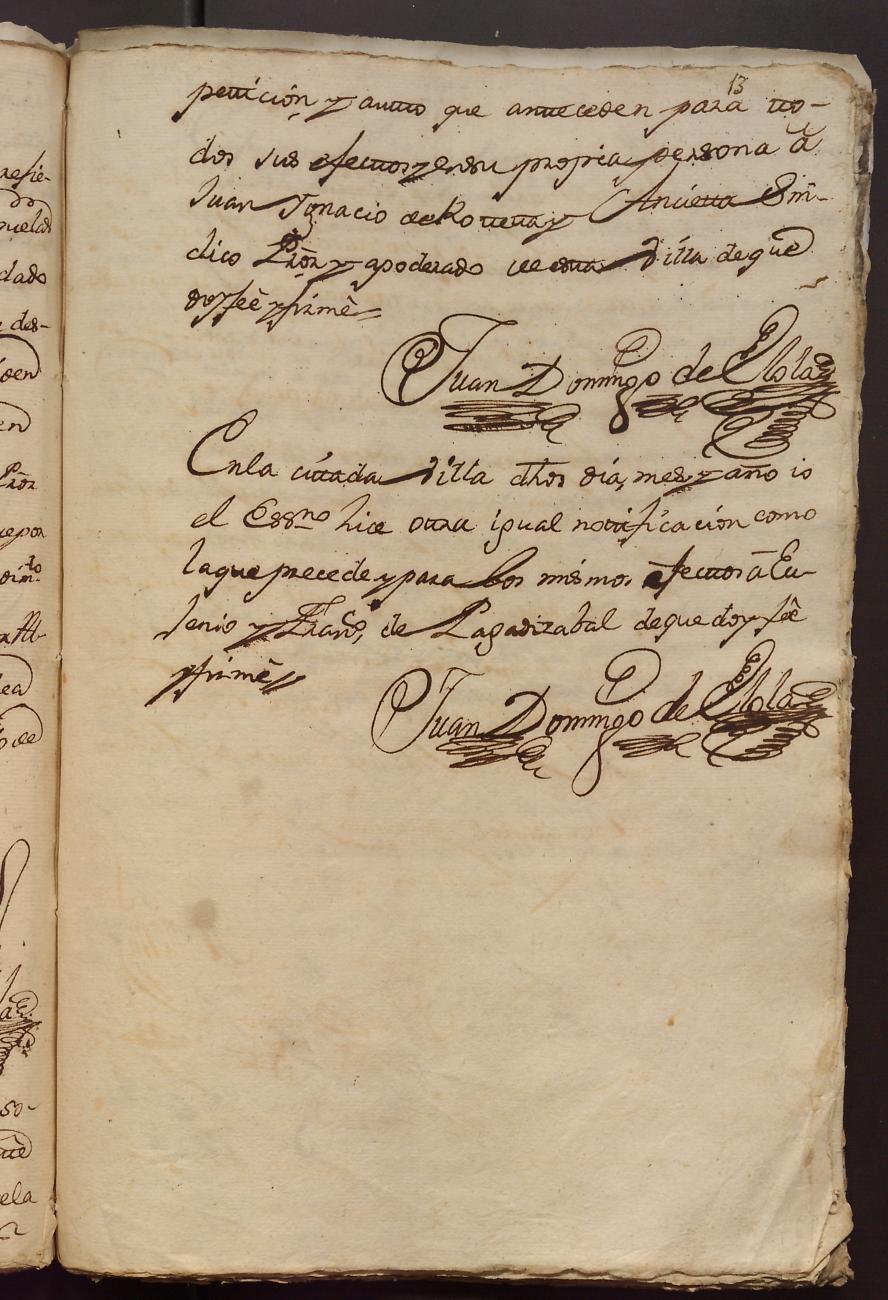 13
petición y autto que anteceden para tto-
dos sus efecttos, y en su propria persona â
Juan Ignacio de Rotteta y Ancietta Sin-
dico Pror. y apoderado de esta Villa de que
doy feê y firmê
Juan Domingo de Elola
En la cittada Villa dhos dia, mes, y año io
el Essno hice otra igual notificacion como
la que precede y para los mismos efecttos â Eu-
senio y Frañco de Lagadizabal de que doy feê
y firmê
Juan Domingo de Elola
refie-
dado
e des-
en
Pror
ue por
ea
so-
que
ela